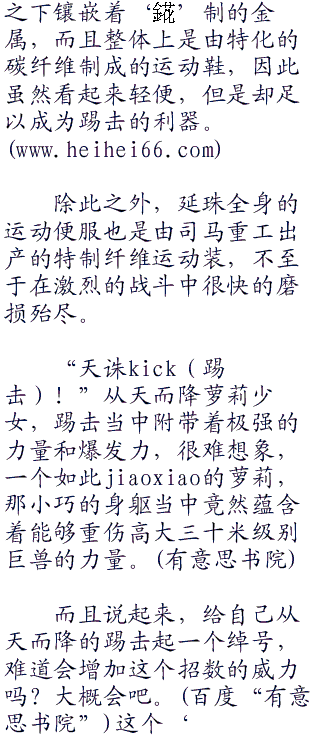 之下镶嵌着‘錵’制的金
属，而且整体上是由特化的
碳纤维制成的运动鞋，因此
虽然看起来轻便，但是却足
以成为踢击的利器。
(www.heihei66.com)
除此之外，延珠全身的
运动便服也是由司马重工出
产的特制纤维运动装，不至
于在激烈的战斗中很快的磨
损殆尽。
“天诛kick（踢
击）！”从天而降萝莉少
女，踢击当中附带着极强的
力量和爆发力，很难想象，
一个如此jiaoxiao的萝莉，
那小巧的身躯当中竟然蕴含
着能够重伤高大三十米级别
巨兽的力量。(有意思书院)
而且说起来，给自己从
天而降的踢击起一个绰号，
难道会增加这个招数的威力
吗？大概会吧。(百度“有意
思书院”)这个‘